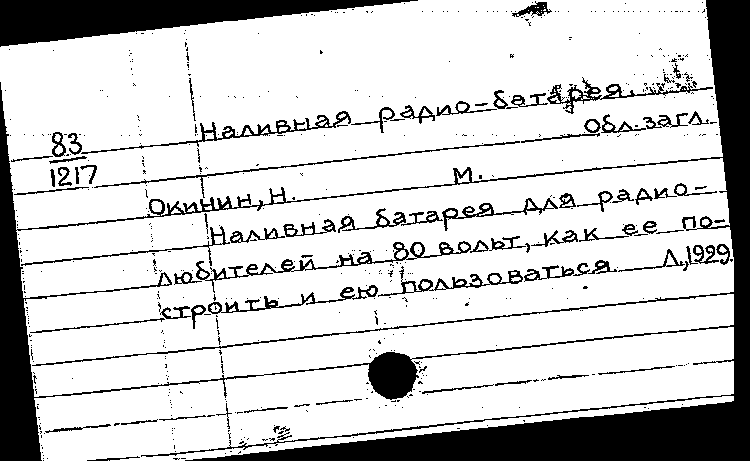 Наливная радио-батарея.
Обл. загл.
83
1217
Окинин, Н. М.
Наливная батарея для радио-
любителей на 80 вольт, как ее по-
строить и ею пользоваться. Л., 1929.